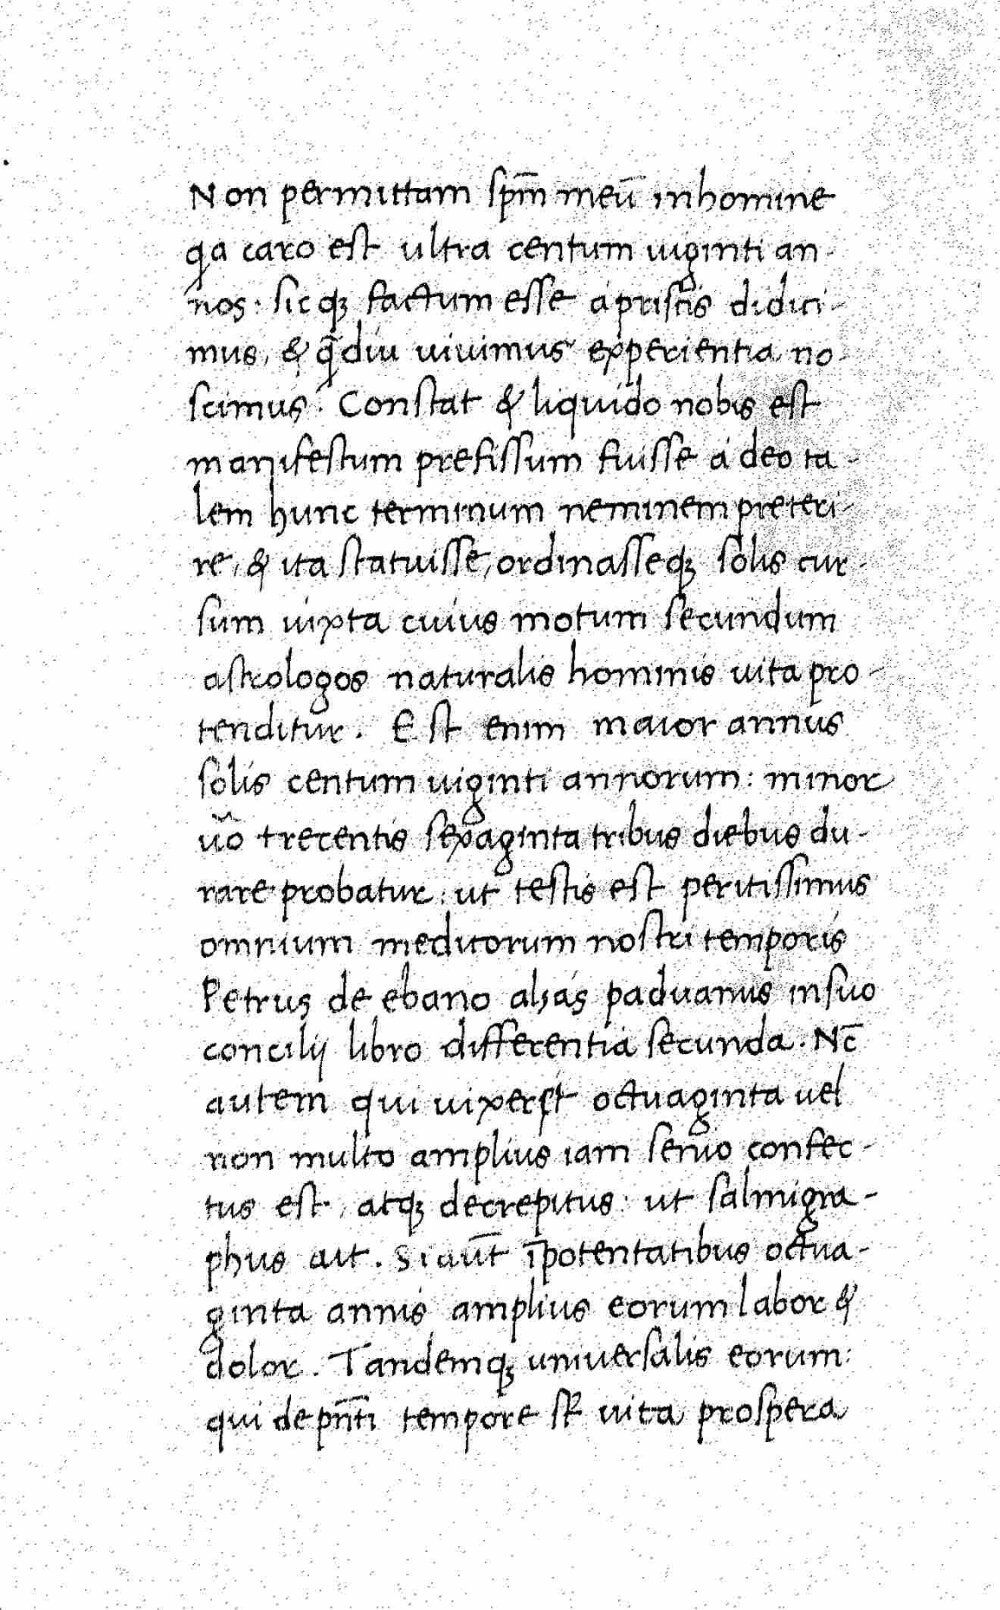 Non permittam spm̄ meū in homine
qa caro est ultra centum uiginti an-
nos: sicqȝ factum esse a priscis didici-
mus, & qā diu uiuimus experientia no-
scimus. Constat & liquido nobis est
manifestum prefissum fuisse á deo ta-
lem hunc terminum neminem preteri-
re, & ita statuisse, ordinasseqȝ solis cur-
sum iuxta cuius motum secundum
astrologos naturalis hominis uita pro-
tenditur. Est enim maior annus
solis centum uiginti annorum: minor
uo trecentis sexaginta tribus diebus du-
rare probatur: ut testis est peritissimus
omnium medicorum nostri temporis
Petrus de ebano paduanus in suo
concilij libro differentia secunda. Nc̄
autem qui octuaginta uel
non multo amplius iam senio confec-
tus est, atqȝ decrepitus: ut salmigra-
phus ait. Si aut̄ ī potentatibus octua-
ginta annis amplius eorum labor &
dolor. Tandemqȝ uniuersalis eorum:
qui de pn̄ti tempore uita prospera